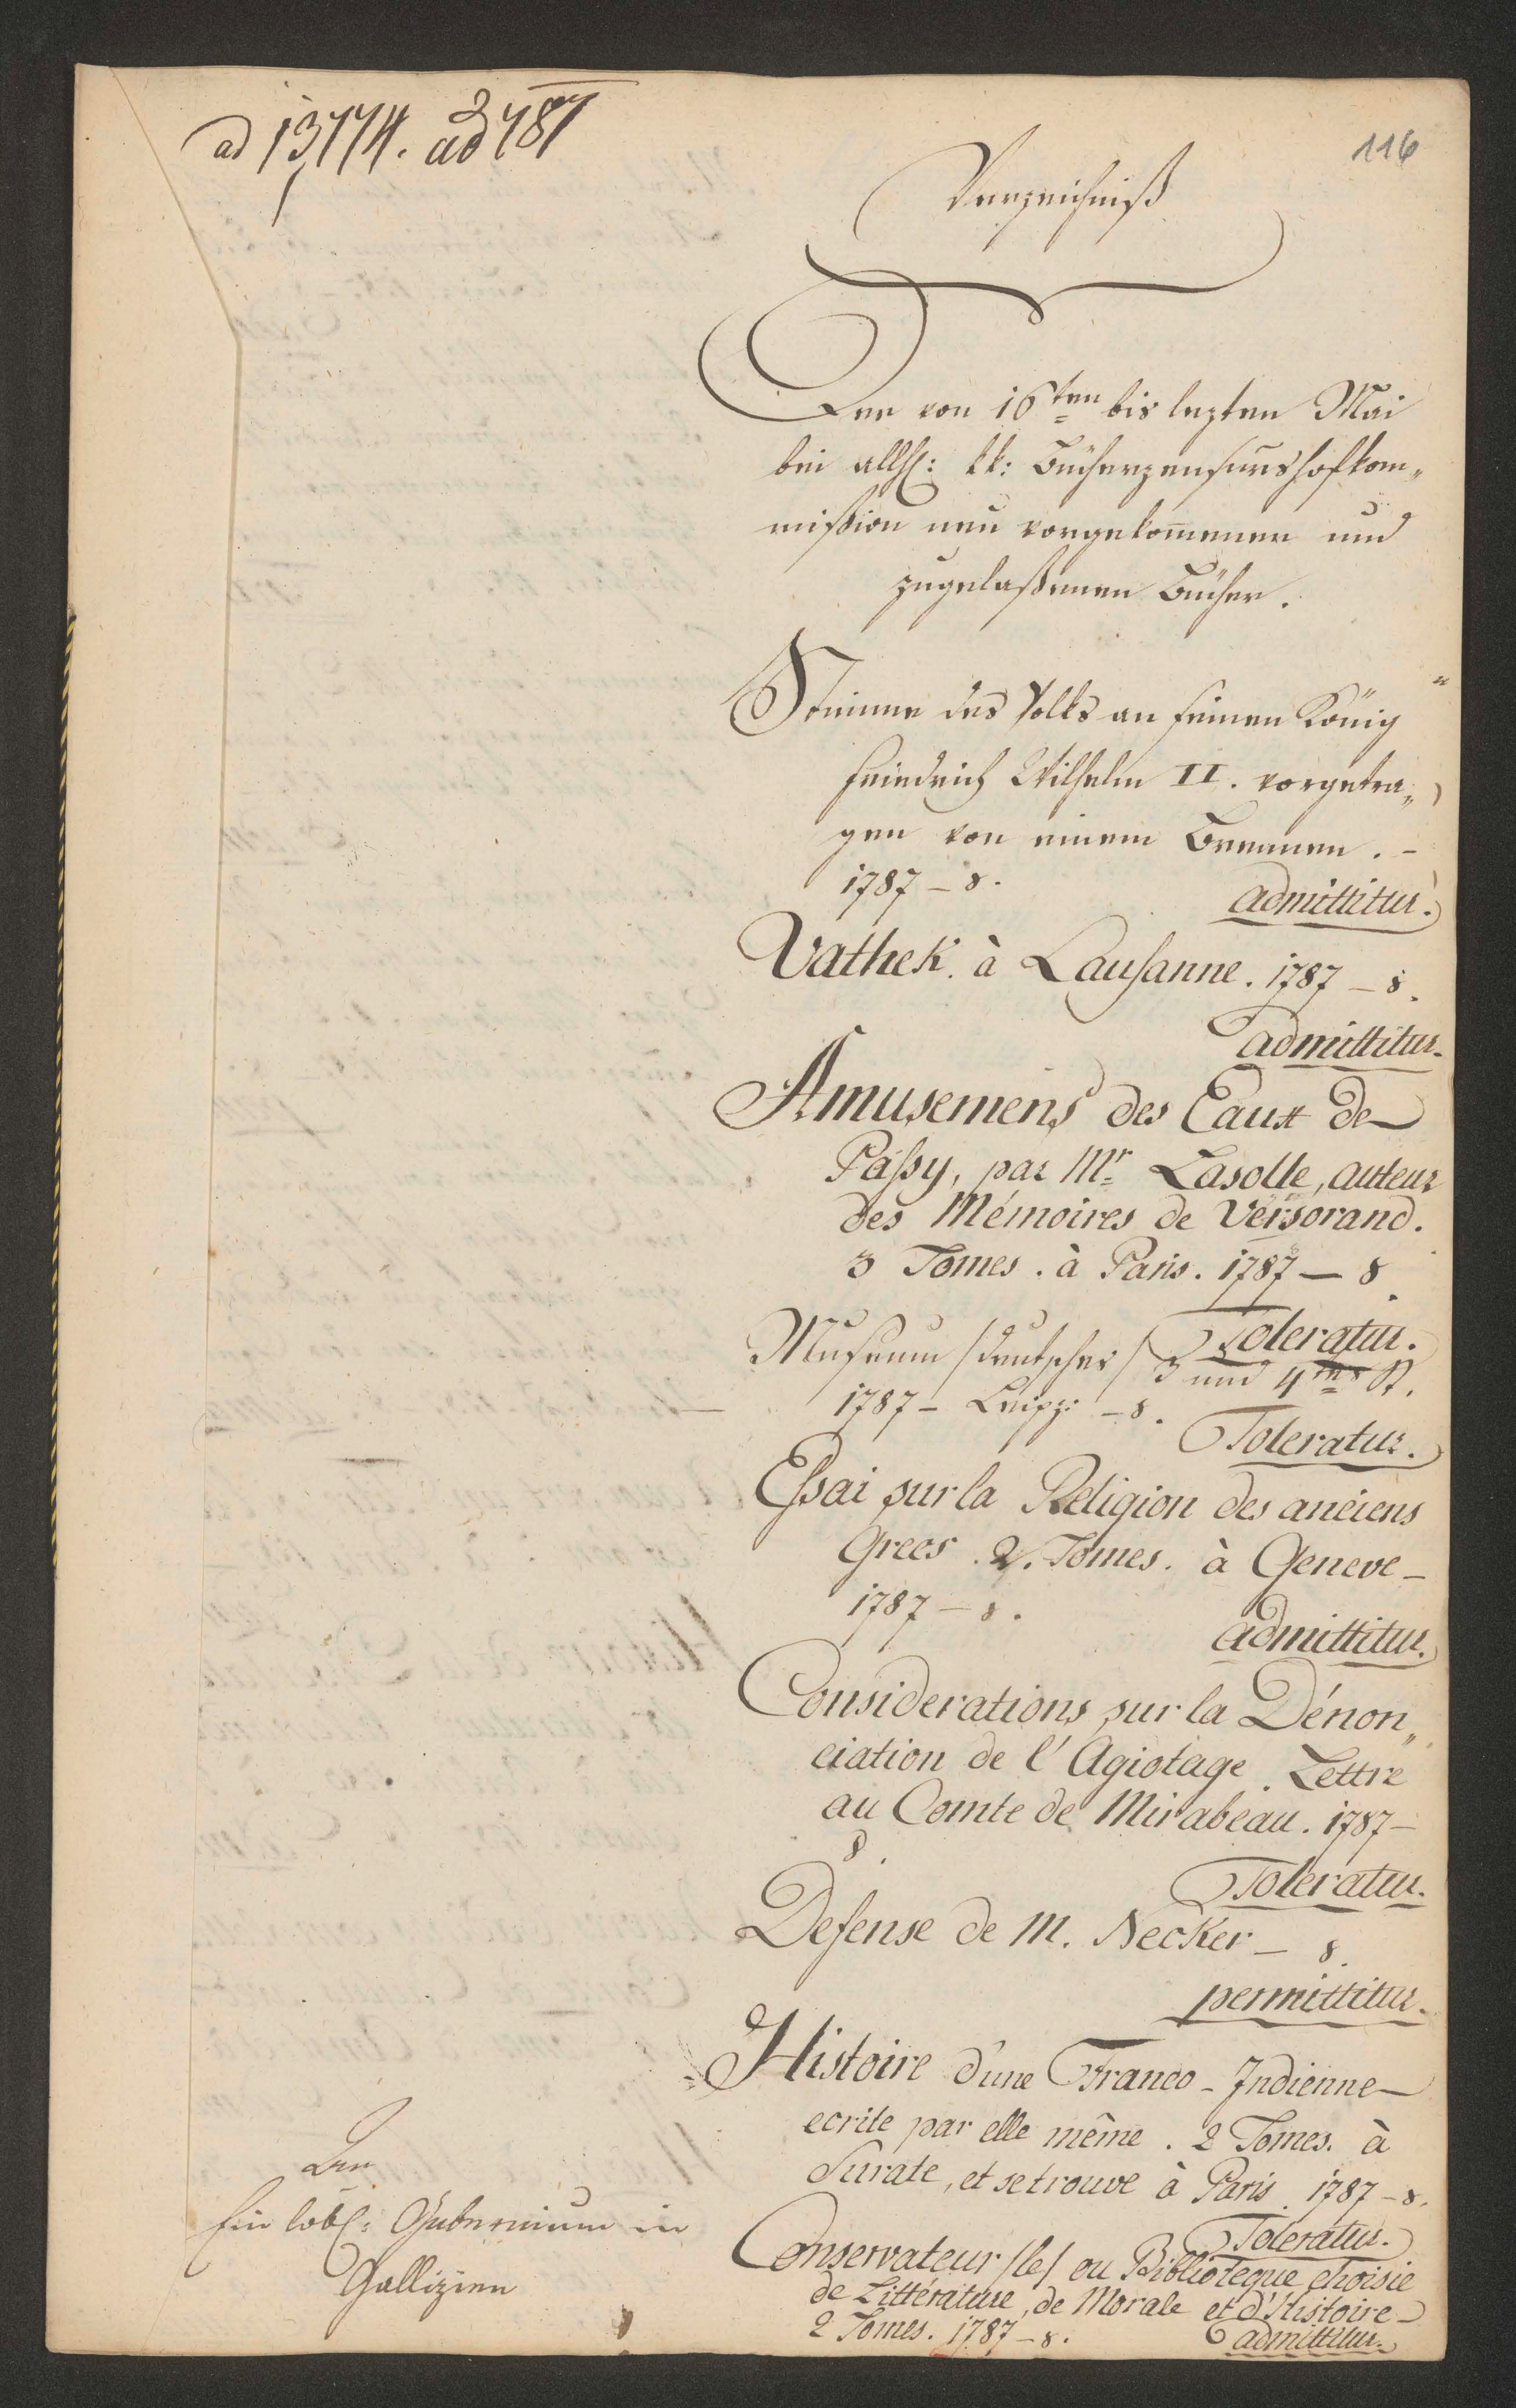 ad 13,774. ad 787
116
Verzeichniß
Der von 16ten bis lezten Mai
bei allh: kk: Bücherzensurshofkom„
mißion neu vorgekom̅enen und
zugelaßenen Bücher.
Stimme des Volks an seinen König
Friedrich Wilhelm II. vorgetra„
gen von einem Brennen. –
1787 – 8.
admittitur.
Vathek. à Lausanne. 1787 – 8.
admittitur.
Amusemens des Eaux de
Passy, par Mr. Lasolle, auteur
des Mémoires de Versorand.
3 Tomes. à Paris. 1787 – 8.
Toleratur.
Museum /deutsches/ 3 und 4tes St.
1787 – Leipz: – 8.
Toleratur.
Essai sur la Religion des anciens
Grecs. 2. Tomes. à Geneve –
1787 – 8.
admittitur.
Considerations sur la Dénon„
ciation de l'Agiotage. Lettre
au Comte de Mirabeau. 1787 –
8.
Toleratur.
Defense de M. Necker – 8.
permittitur.
Histoire d'une Franco-Indienne –
ecrite par elle même. 2 Tomes. à
Surate, et se trouve à Paris. 1787 – 8.
Toleratur.
Conservateur /le/ ou Biblioteque choisie
de Littérature, de Morale et d'Histoire –
2 Tomes. 1787 – 8.
admittitur.
An
Ein löbl: Gubernium in
Gallizien